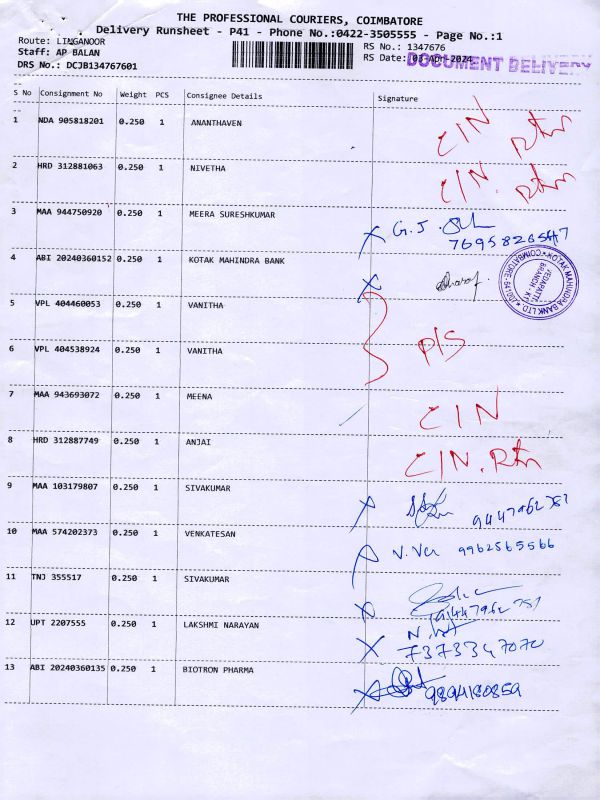 THE PROFESSIONAL COURIERS, COIMBATORE
Delivery Runsheet - P41 - Phone No.:0422-3505555 - Page No.:1
Route: LINGANOOR
RS No.: 1347676
Staff: AP BALAN
RS Date: 03-Apr-2024
DOCUMENT DELIVERY
DRS No.: DCJB134767601
S No Consignment No Weight PCS Consignee Details Signature
1 NDA 905818201 0.250 1 ANANTHAVEN CIN Rtn
2 HRD 312881063 0.250 1 NIVETHA CIN. Rtn
3 MAA 944750920 0.250 1 MEERA SURESHKUMAR G.J
4 ABI 20240360152 0.250 1 KOTAK MAHINDRA BANK
KOTAK MAHINDRA BANK LTD
BRANCH
5 VPL 404460053 0.250 1 VANITHA
P/S
6 VPL 404538924 0.250 1 VANITHA
7 MAA 943693072 0.250 1 MEENA CIN
8 HRD 312887749 0.250 1 ANJAI CIN. Rtn
9 MAA 103179807 0.250 1 SIVAKUMAR
10 MAA 574202373 0.250 1 VENKATESAN 9962565566
11 TNJ 355517 0.250 1 SIVAKUMAR
12 UPT 2207555 0.250 1 LAKSHMI NARAYAN
7373347070
13 ABI 20240360135 0.250 1 BIOTRON PHARMA 9894180859